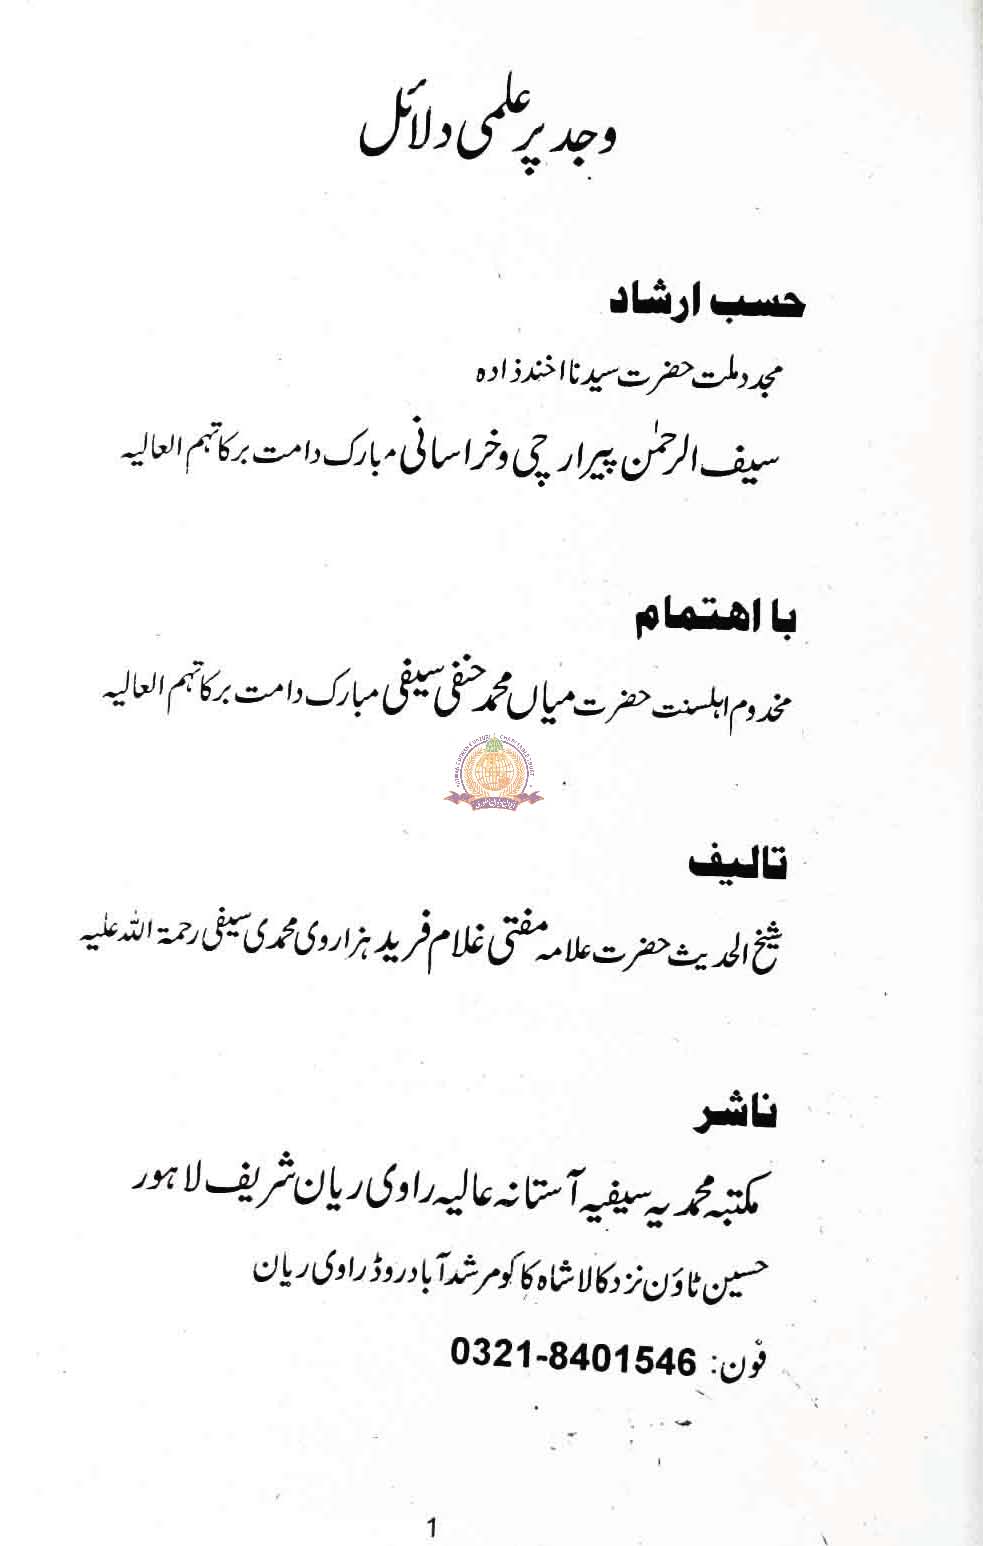 وجد پر علمی دلائل
حسب ارشاد
مجدد ملت حضرت سیدنا اخندذادہ
سیف الرحمٰن پیر ارچی و خراسانی مبارک دامت برکاتہم العالیہ
با اهتمام
مخدوم اہلسنت حضرت میاں محمد حنفی سیفی مبارک دامت برکاتہم العالیہ
تالیف
شیخ الحدیث حضرت علامہ مفتی غلام فرید ہزاروی محمدی سیفی رحمۃ اللہ علیہ
ناشر
مکتبہ محمدیہ سیفیہ آستانہ عالیہ راوی ریان شریف لاہور
حسین ٹاؤن نزد کالا شاہ کاکو مرشد آباد روڈ راوی ریان
فون: 0321-8401546
1